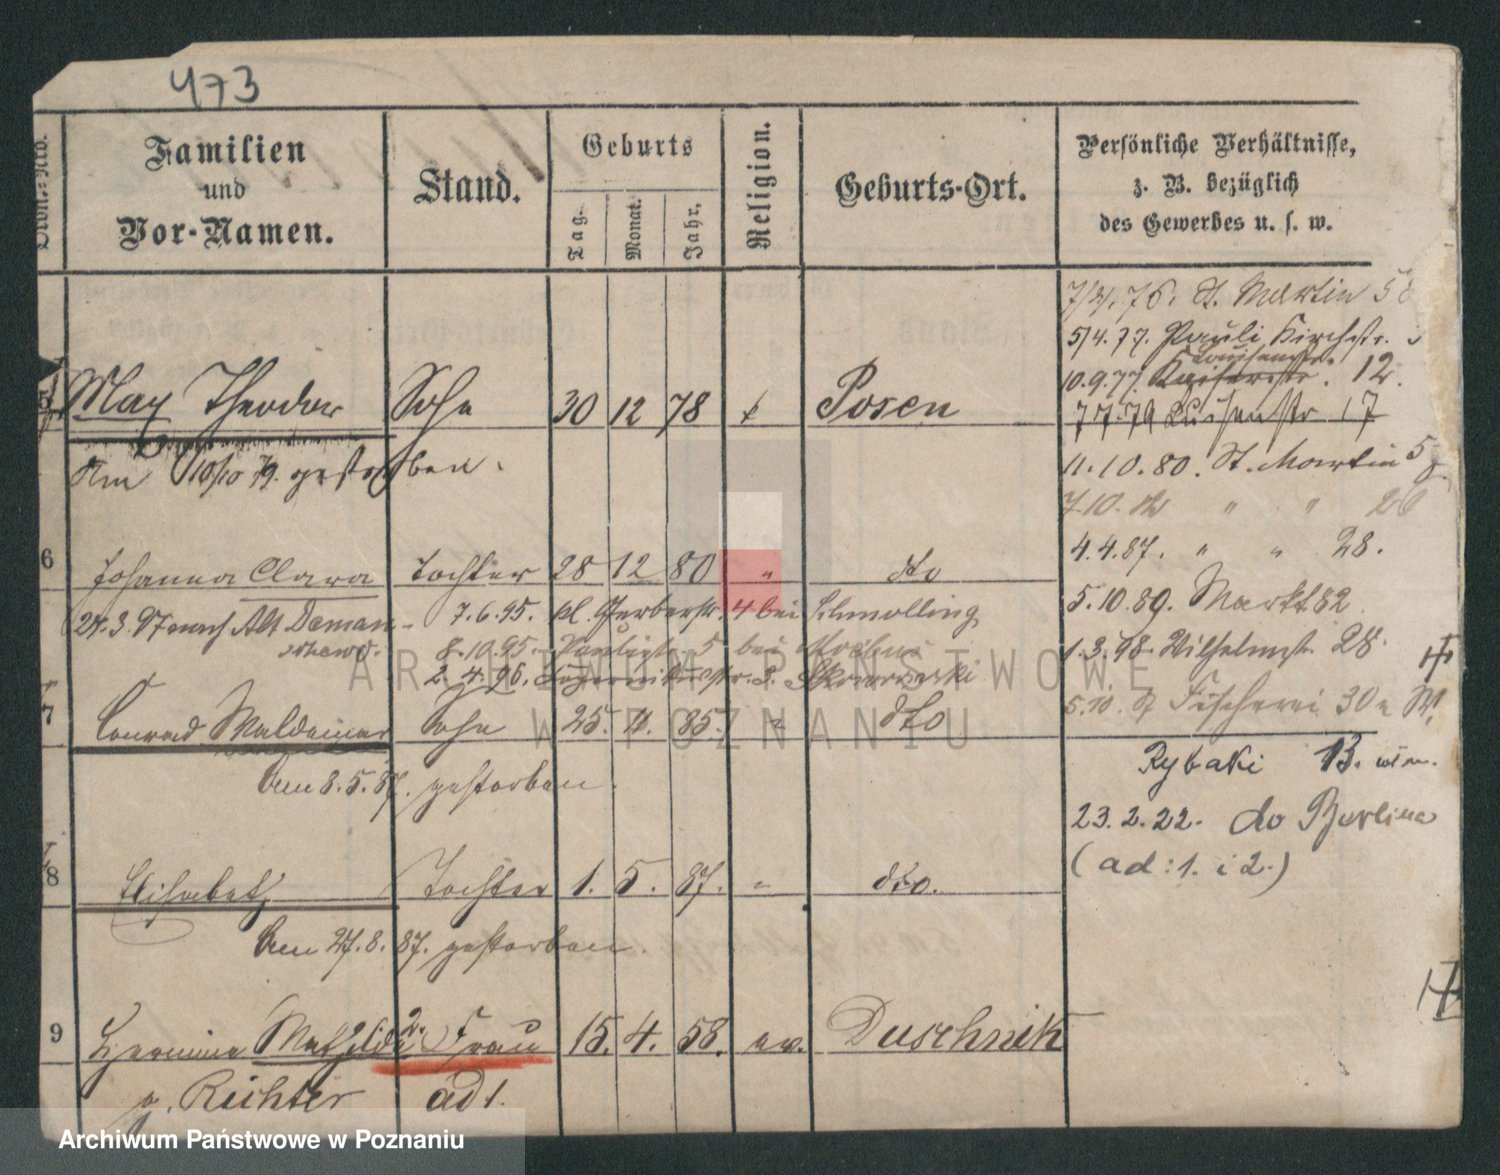 473
Familien
und
Vor-Namen.
Stand.
Geburts
Tag.
Monat.
Jahr.
Religion.
Geburts-Ort.
Persönliche Verhältnisse,
z. B. bezüglich
des Gewerbes u. s. w.
7/2/.76. St. Martin
5/4.77. Pauli Kirchstr.
Louisenstr.
10.9.77. 12.
5 Max Theodor Sohn 30 12 78 Posen
7 7.79 Luisenstr 17
Am 10/10 79. gestorben.
11.10.80. St. Martin
7.10. " "
4.4.87. " " 28.
6 Johanna Clara Tochter 28 12 80 " dto
5.10.89. Markt 82
7.6.95. kl. Gerberstr. 4 bei Schmolling
24.3.97 nach Alt Doman-
8.10.95. 5 bei
1.3.98. Wilhelmstr 28.
2.4.96.
5.10. Fischerei 30
7 Conrad Waldemar Sohn 25. 11. 85. " dto
Rybaki 13.
Am 8.5.87. gestorben.
23.2.22. do Berlina
(ad: 1. i 2.)
8 Elisabeth Tochter 1. 5. 87. " dto.
Am 27.8.87. gestorben.
9 Hermine Mathilde 2. Frau 15. 4. 58. ev. Duschnik
g. Richter ad 1.
ARCHIWUM PAŃSTWOWE
W POZNANIU
Archiwum Państwowe w Poznaniu